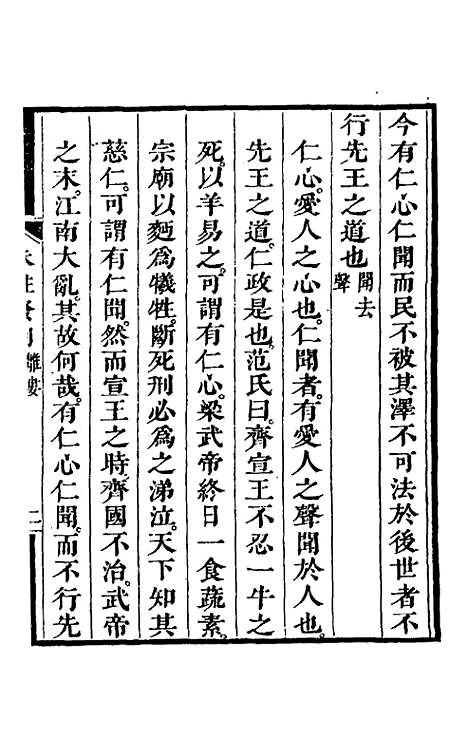 今有仁心仁聞而民不被其澤不可法於後世者不
行先王之道也聞去聲
仁心愛人之心也仁聞者有愛人之聲聞於人也
先王之道仁政是也范氏曰齊宣王不忍一牛之
死以羊易之可謂有仁心梁武帝終日一食蔬素
宗廟以麪為犧牲斷死刑必為之涕泣天下知其
慈仁可謂有仁聞然而宣王之時齊國不治武帝
之末江南大亂其故何哉有仁心仁聞而不行先
離婁
二